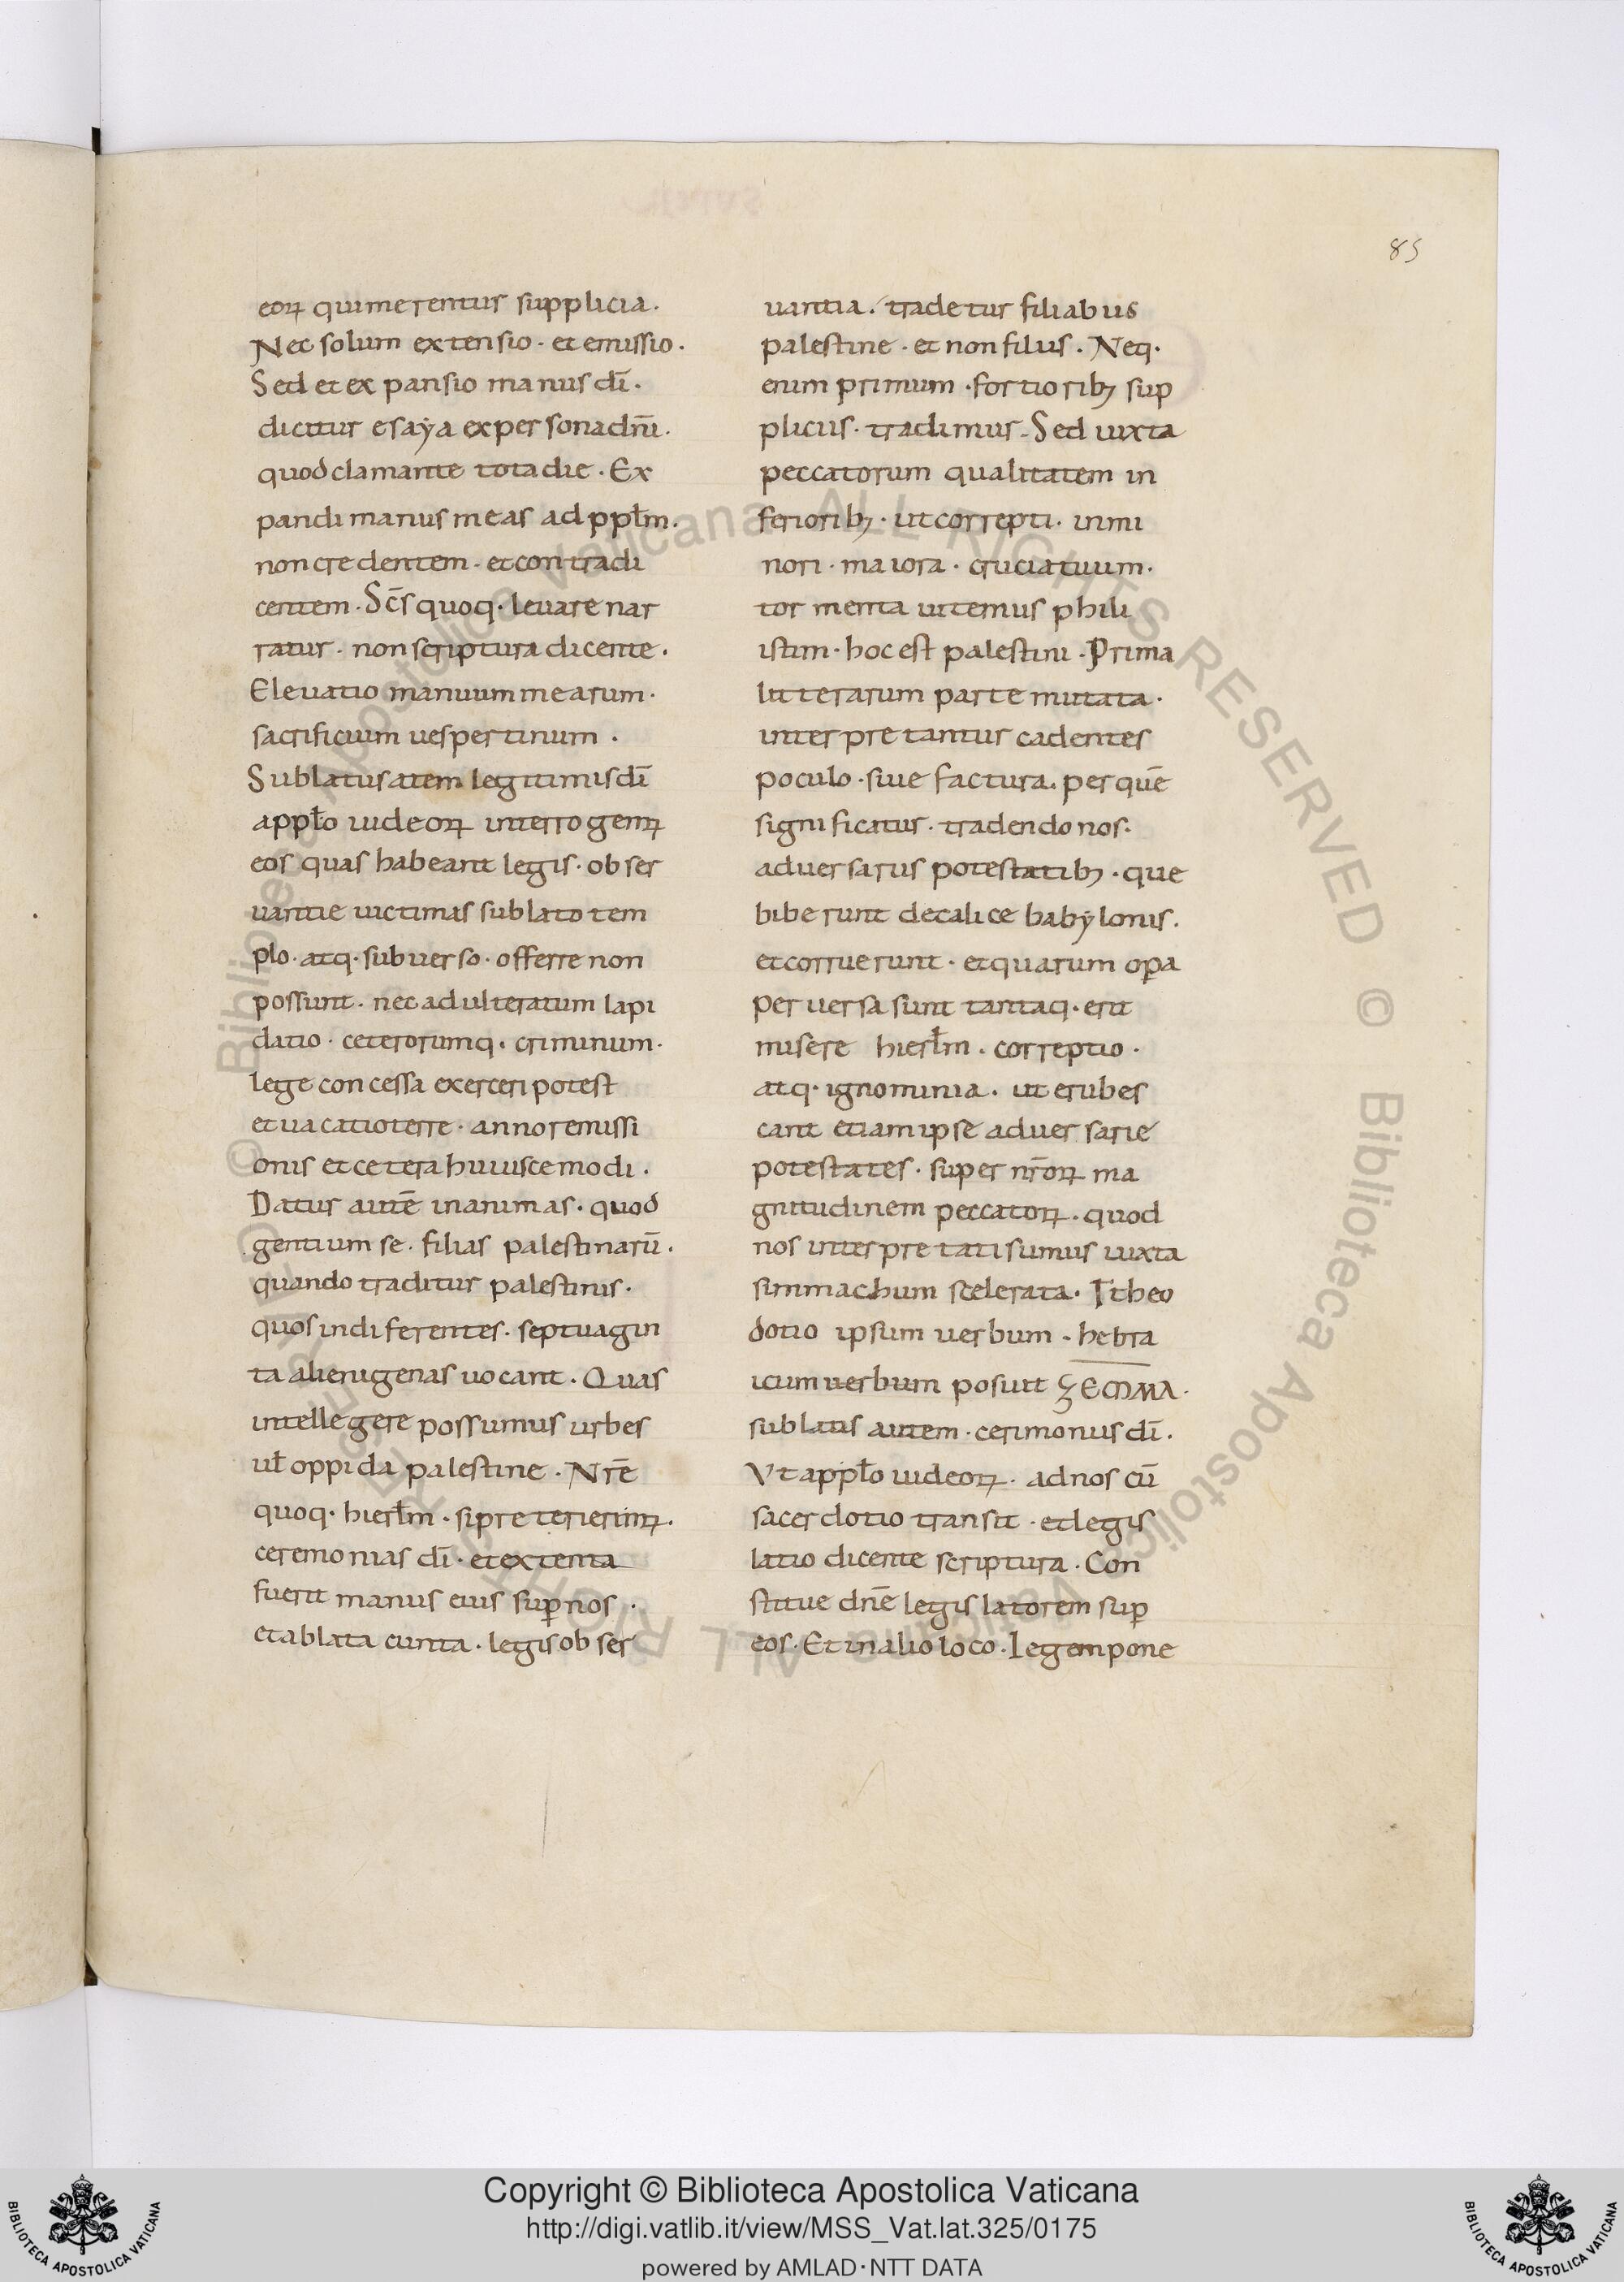 85
eoꝝ qui merentur supplicia.
Nec solum extensio · et emissio.
Sed et ex pansio manus dı̄.
dicitur esaẏa ex persona dn̄i.
quod clamante tota die. Ex
pandi manus meas ad ppłm.
non credentem. et contradi
centem. Sc̄s quoq· levare nar
ratur. non scriptura dicente.
Elevatio manuum mearum.
sacrificium uespertinum.
Sublatus atem legitimis dı̄
a ppło iudeoꝝ interrogemꝝ
eos quas habeant legis. obser
uantie uictimas sublato tem
plo. atq· subuerso. offerre non
possunt. nec adulteratum lapi
datio. ceterorumq· criminum.
lege concessa exerceri potest
et uacatio terre. anno remissi
onis et cetera huiuscemodi.
Datur autē in animas. quod
gentium se. filias palestinarū.
quando traditur palestinis.
quos indiferentes. septuagin
ta alienigenas uocant. Quas
intellegere possumus urbes
uł oppida palestine. Nrē
quoq· hierłm. si preterierimꝝ.
ceremonias dı̄. et extenta
fuerit manus eius sup̱ nos.
et ablata cunta. legis obser
uantia. tradetur filiabus
palestine. et non filiis. Neq·
enim primum. fortiorib; sup
pliciis. tradimur. Sed iuxta
peccatorum qualitatem in
feriorib;. ut correpti. in mi
nori. maiora. cruciatuum.
tormenta uitemus phili
istim. hoc est palestini. Prima
litterarum parte mutata.
interpretantur cadentes
poculo. siue factura. per quē
significatur. tradendo nos.
aduersariis potestatib;. que
biberunt de calice babẏlonis.
et corruerunt. et quarum op̱a
peruersa sunt tantaq· erit
misere hierłm. correptio.
atq· ignominia. ut erubes
cant etiam ipse aduersarie
potestates. super nr̄oꝝ ma
gnitudinem peccatoꝝ. quod
nos interpretati sumus iuxta
simmachum scelerata. I theo
dotio ipsum uerbum. hebra
icum uerbum posuit ꝫEMMA.
sublatis autem. cerimoniis dı̄.
Vt a ppło iudeoꝝ. ad nos cū
sacerdotio transit. et legis
latio dicente scriptura. Con
stitue dn̄e legis latorem sup̱
eos. Et in alio loco. Legem pone
Copyright © Biblioteca Apostolica Vaticana
http://digi.vatlib.it/view/MSS_Vat.lat.325/0175
powered by AMLAD·NTT DATA